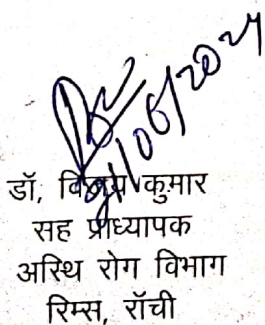 /06/2024
डॉ, कुमार
सह प्राध्यापक
अस्थि रोग विभाग
रिम्स, राँची